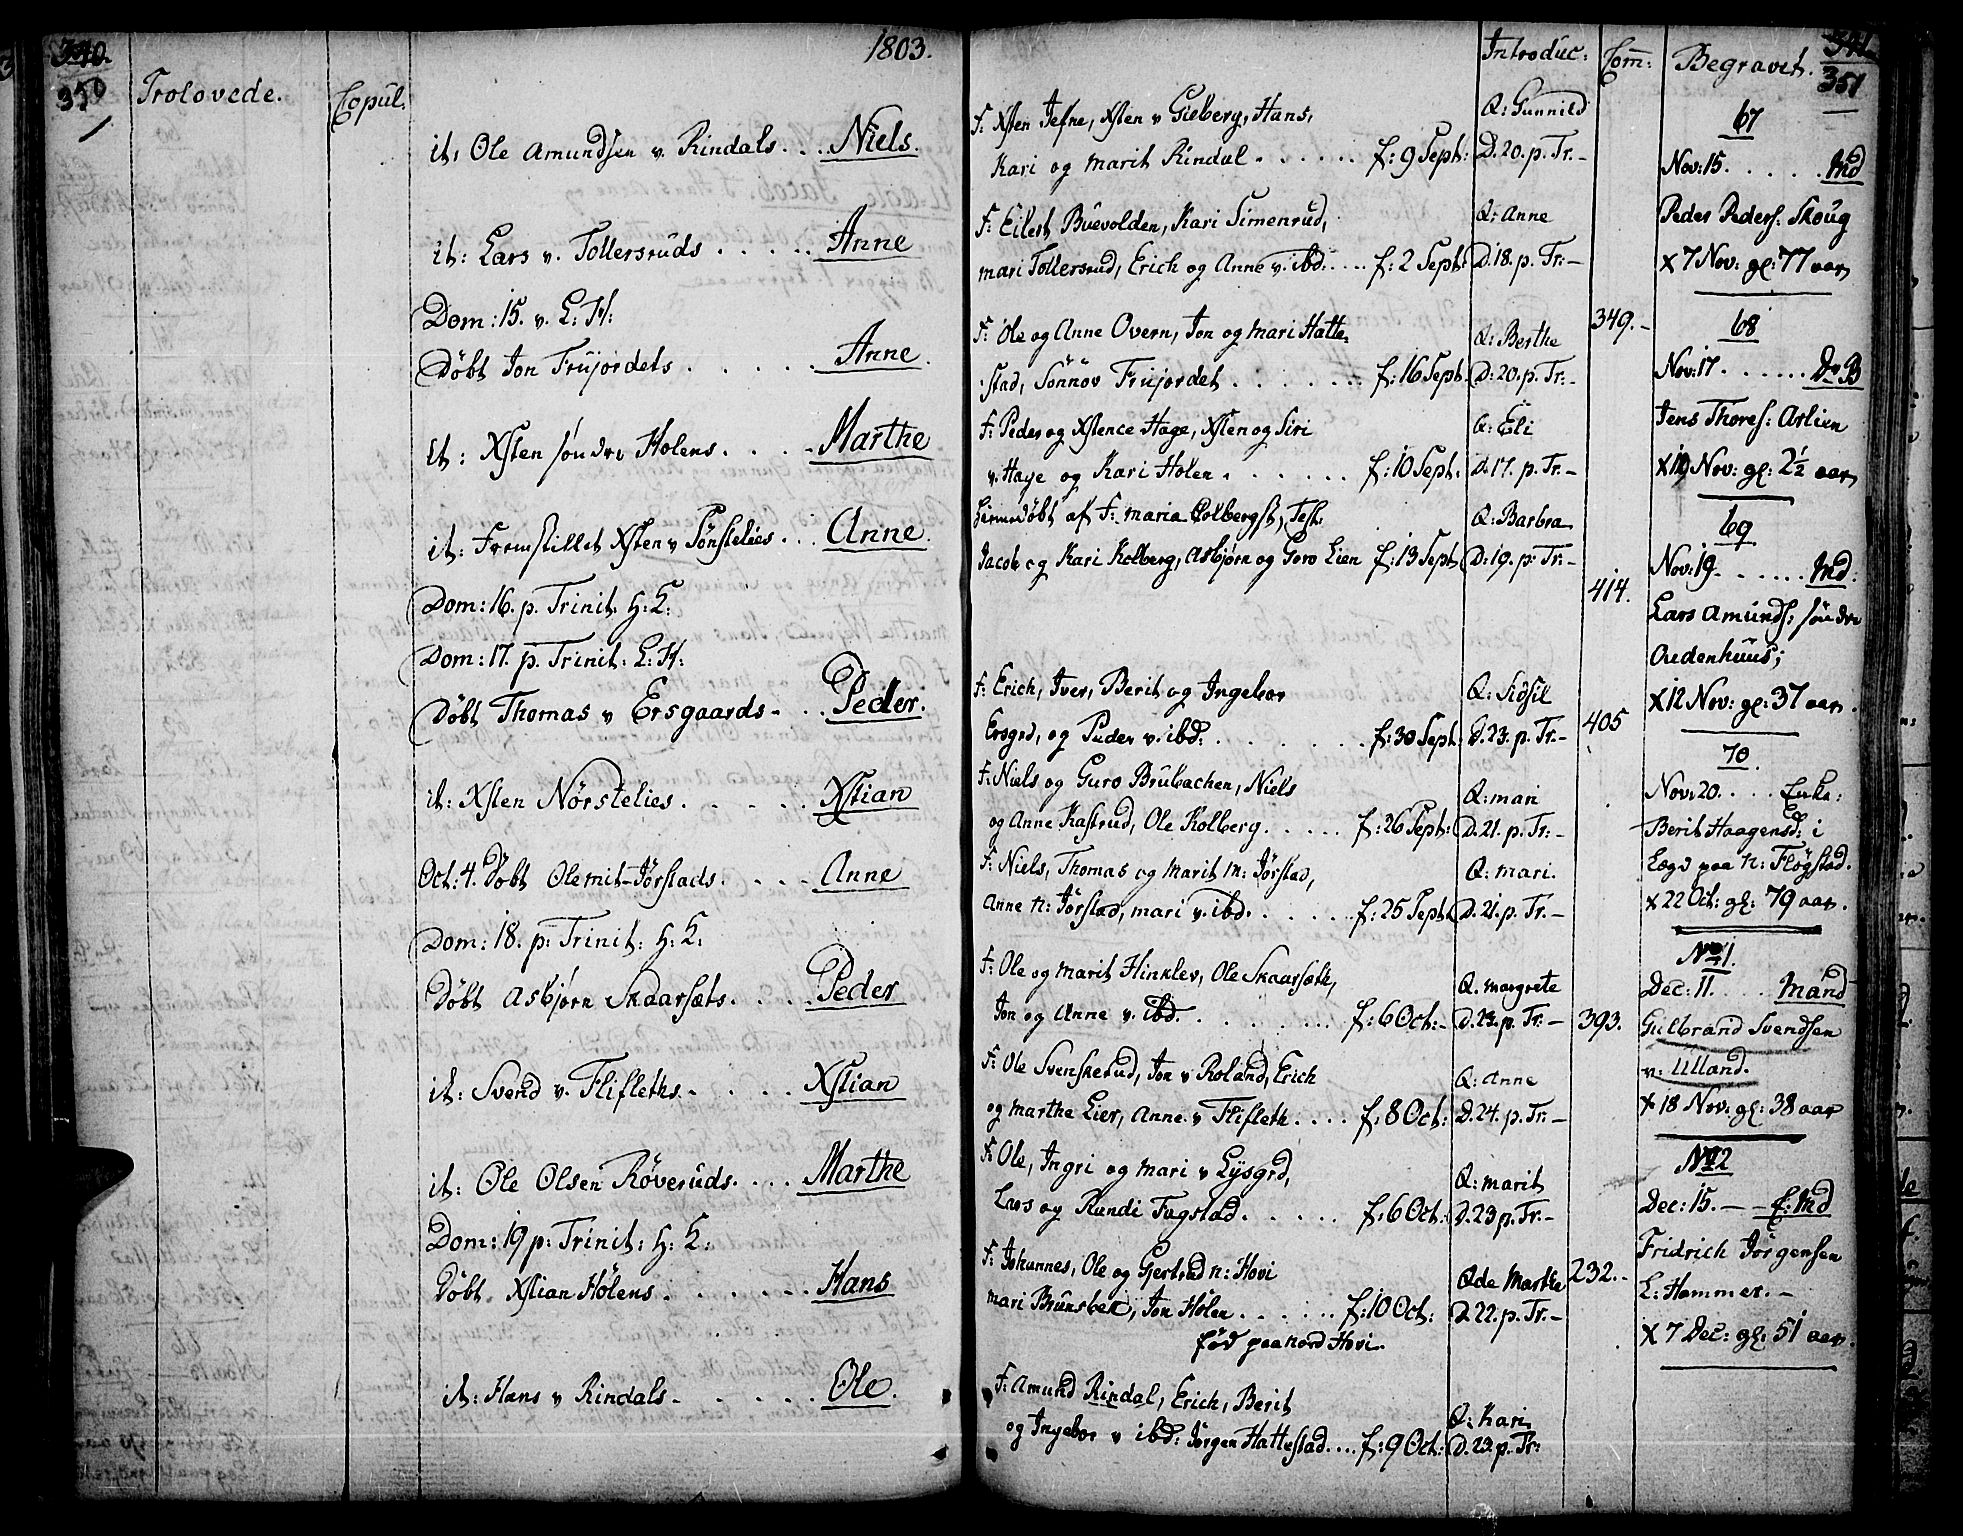 340.
350
1803.
Trolovede.
Copul:
it: Ole Amundsen v. Rindals . . . Niels.
it: Lars v. Tollersruds . . . . . Anne
Dom: 15. v. L: K:
Døbt Jon Frujordets . . . . . Anne.
it: Xsten søndre Holens . . . . Marthe
it: Fremstillet Xsten v Sønstelies . . . Anne.
Dom: 16. p. Trinit. H: K:
Dom: 17. p. Trinit: L: K:
Døbt Thomas v Ersgaards . . . Peder.
it: Xsten Nørstelies . . . . . Xstian
Oct: 4. Døbt Ole mit-Jørstads . . . . Anne
Dom: 18. p: Trinit: H: K:
Døbt Asbjørn Skaarsæts . . . . Peder
it: Svend v. Flifleths . . . . . Xstian
it: Ole Olsen Røveruds . . . . Marthe
Dom: 19 p: Trinit: H: K:
Døbt Xstian Hølens . . . . . . Hans
it: Hans v Rindals . . . . . . Ole.
341
351
Introduc:
Com:
Begravet.
F: Xsten Jefne, Xsten v Gieberg, Hans,
Kari og Marit Rindal . . . . . . f: 9 Sept:
Q: Gunnild
D. 20. p. Tr. -
F: Eilert Buevolden, Kari Simenrud,
Mari Tollersrud, Erich og Anne v. ibd: . . . . f: 2 Sept:
Q: Anne
D. 18. p. Tr: -
F: Ole og Anne Overn, Jon og Mari Hatte-
stad, Sønnov Frujordet . . . . . . . f: 16 Sept.
Q: Berthe
D: 20. p. Tr: -
349. -
F: Peder og Xstence Hage, Xsten og Siri
v. Hage og Kari Holen . . . . . . f: 10 Sept:
Q: Eli
D. 17. p. Tr. -
Hiemedøbt af F: Maria Colbergst, Test:
Jacob og Kari Kolberg, Asbjørn og Goro Lien f: 13 Sept
Q: Barbra
D: 19. p: Tr: -
414.
F: Erich, Iver, Berit og Ingebor
Ersgrd, og Peder v. ibd: . . . . . . . f: 30 Sept:
Q: Sidsil
D. 23. p. Tr. -
405
F: Niels og Guro Brubachen, Niels
og Anne Kastrud, Ole Kolberg . . . . . f: 26 Sept:
Q: Mari
D. 21. p. Tr: -
F: Niels, Thomas og Marit M: Jørstad,
Anne N: Jørstad, Mari v. ibd . . . . . . f: 25 Sept:
Q: Mari.
D. 21. p. Tr. -
F: Ole og Marit Hinklev, Ole Skaarsæth,
Jon og Anne v. ibd . . . . . . . . f: 6 Oct: -
Q. Margrete
D. 23. p. Tr: -
393.
F: Ole Svenskerud, Jon v Roland, Erich
og Marthe Lier, Anne v Flifleth . . . . f: 8 Oct:
Q: Anne
D. 24. p. Tr: -
F: Ole, Ingri og Mari v Lysgrd,
Lars og Rundi Fagstad . . . . . f: 6 Oct:
Q: Marit
D. 23 p. Tr: -
F: Johannes, Ole og Gjertrud n: Hovi
Mari Brunsbek, Jon Hølen . . . . . . f: 10 Oct:
født paa nord Hovi.
Qde Marthe
D. 22. p. Tr. -
232. -
F: Amund Rindal, Erich, Berit
og Ingebor v ibd: Jørgen Hattestad . . . . f: 9 Oct:
Q: Kari
D. 23. p. Tr:
67
Nov: 15. . . . . . Md
Peder Peders: Skoug
X 7 Nov: gl: 77 aar
68
Nov: 17 . . . . . . D. B
Jens Thores: Aslien
X 19 Nov: gl: 2½ aar
69
Nov: 19. . . . . . Md:
Lars Amunds: søndre
Audenhuus;
X 12 Nov: gl: 37 aar.
70.
Nov: 20. . . . Enke:
Berit Haagensd: i
Lægd paa N: Fløgstad.
X 22 Oct: gl: 79 aar.
No 1.
Dec: 11. . . . Mand
Gulbrand Svendsen
v: Ulland.
X 18 Nov: gl: 38 aar
No 2
Dec: 15. - - E: Md
Fridrich Jørgensen
L: Hammer. -
X 7 Dec: gl: 51 aar.